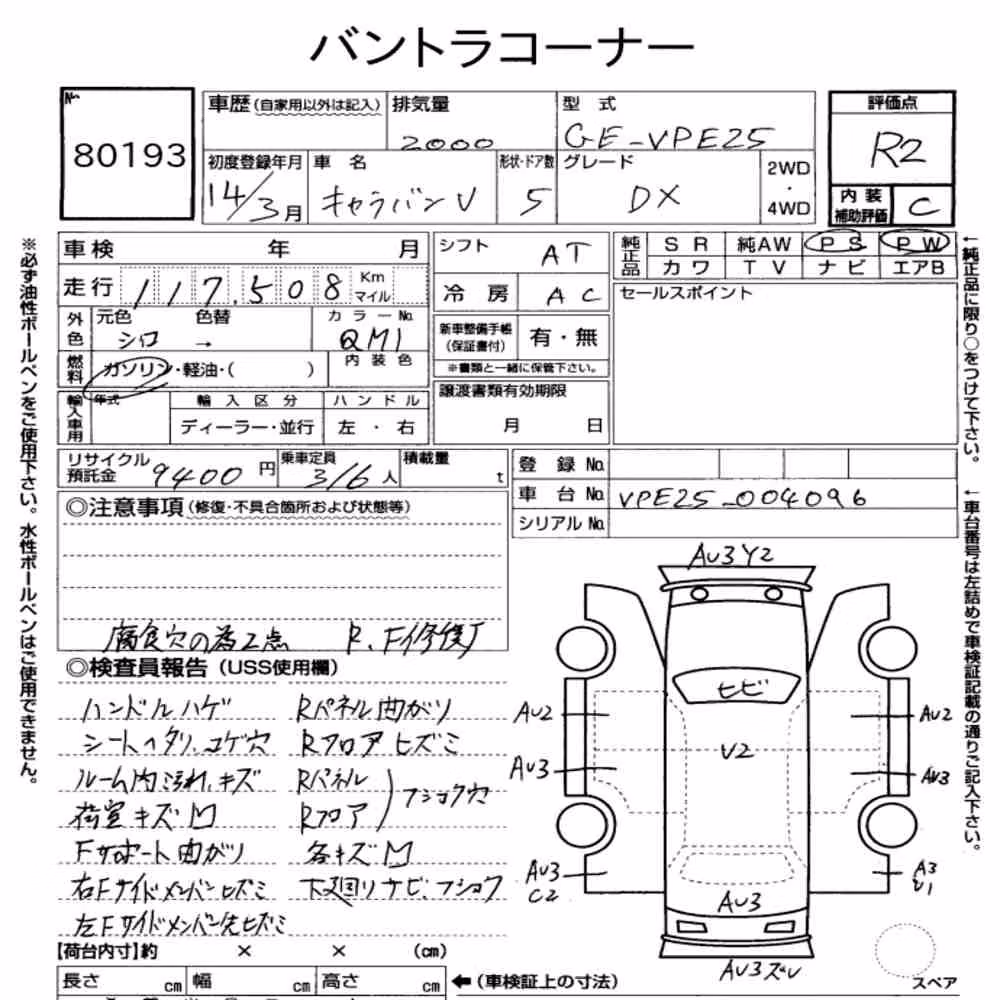 バントラコーナー
No. 80193
車歴(自家用以外は記入) 排気量 2000 型式 GE-VPE25
評価点 R2
初度登録年月 14/3月 車名 キャラバンV 形状・ドア数 5 グレード DX 2WD・4WD
内装補助評価 C
※必ず油性ボールペンをご使用下さい。水性ボールペンはご使用できません。
車検 年 月
走行 117,508 Km マイル
外色 元色 シロ 色替 → カラーNo. QM1
燃料 ガソリン・軽油・( ) 内装色
輸入車用 年式 輸入区分 ディーラー・並行 ハンドル 左・右
シフト AT
冷房 AC
新車整備手帳(保証書付) 有・無
※書類と一緒に保管下さい。
譲渡書類有効期限
月 日
純正品 SR 純AW PS PW
カワ TV ナビ エアB
セールスポイント
←純正品に限り○をつけて下さい。
リサイクル預託金 9400円 乗車定員 3/6人 積載量 t
登録No.
車台No. VPE25-004096
シリアルNo.
←車台番号は左詰めで車検証記載の通りご記入下さい。
◎注意事項(修復・不具合箇所および状態等)
腐食穴の為2点 R、F修復J
◎検査員報告(USS使用欄)
ハンドルハゲ Rパネル曲がり
シートヘタリ、コゲ穴 Rフロアヒズミ
ルーム内汚れ、キズ Rパネル
荷室キズM Rフロア フショク穴
Fサポート曲がリ 各キズM
右Fサイドメンバーヒズミ 下廻りサビ、フショク
左Fサイドメンバー先ヒズミ
AU3 Y2
ヒビ
AU2 AU2
U2
AU3 AU3
AU3 C2 A3 U1
AU3
AU3ズレ
スペア
【荷台内寸】約 × × (cm)
長さ cm 幅 cm 高さ cm ←(車検証上の寸法)